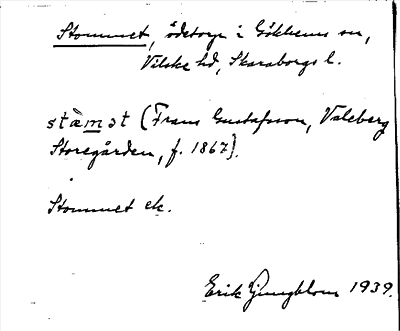 Stommet, ödetorp i Gökhems sn,
Vilske hd, Skaraborgs l.
stàmət (Frans Gustafsson, Valeberg
Storegården, f. 1867).
Stommet ek.
Erik Ljungblom 1939.